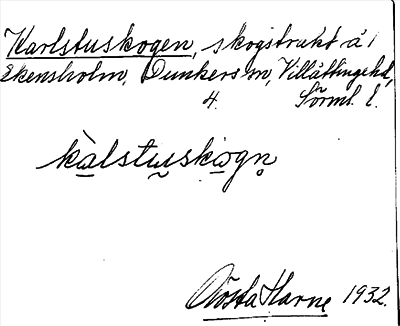 Karlstuskogen, skogstrakt å
Ekensholm, Dunkers sn, Villåttinge hd,
4. Sörml. l.
kàlstuskogn̥
Gösta Harne 1932.